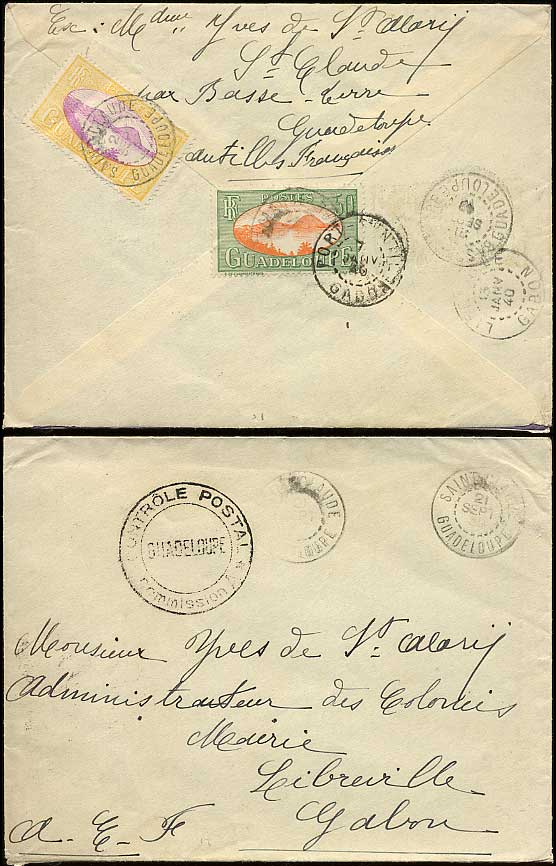 Ex: M^dme Yves de S^t Alary
S^t Claude
par Basse-Terre
Guadeloupe
Antilles Françaises
RF
POSTES
50
GUADELOUPE
GUADELOUPE
PORT
7
JANV
40
GABON
GUADELOUPE
15
JANV
40
GABON
CONTRÔLE POSTAL
GUADELOUPE
Commission A
CLAUDE
SAINT
21
SEPT
GUADELOUPE
Monsieur Yves de S^t Alary
Administrateur des Colonies
Mairie
Libreville
Gabon
A.E.F